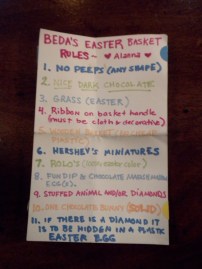 BEDA'S EASTER BASKET
RULES ~ ♥ Alanna ♥
1. NO PEEPS (ANY SHAPE)
2. NICE DARK CHOCOLATE
3. GRASS (EASTER)
4. Ribbon on basket handle
(must be cloth & decorative)
5.
6. HERSHEY'S MINIATURES
7. ROLO'S
8. FUN DIP & CHOCOLATE
EGG(S).
9. STUFFED ANIMAL AND/OR DIAMONDS
10. ONE CHOCOLATE BUNNY (SOLID)
11. IF THERE IS A DIAMOND IT
IS TO BE HIDDEN IN A PLASTIC
EASTER EGG